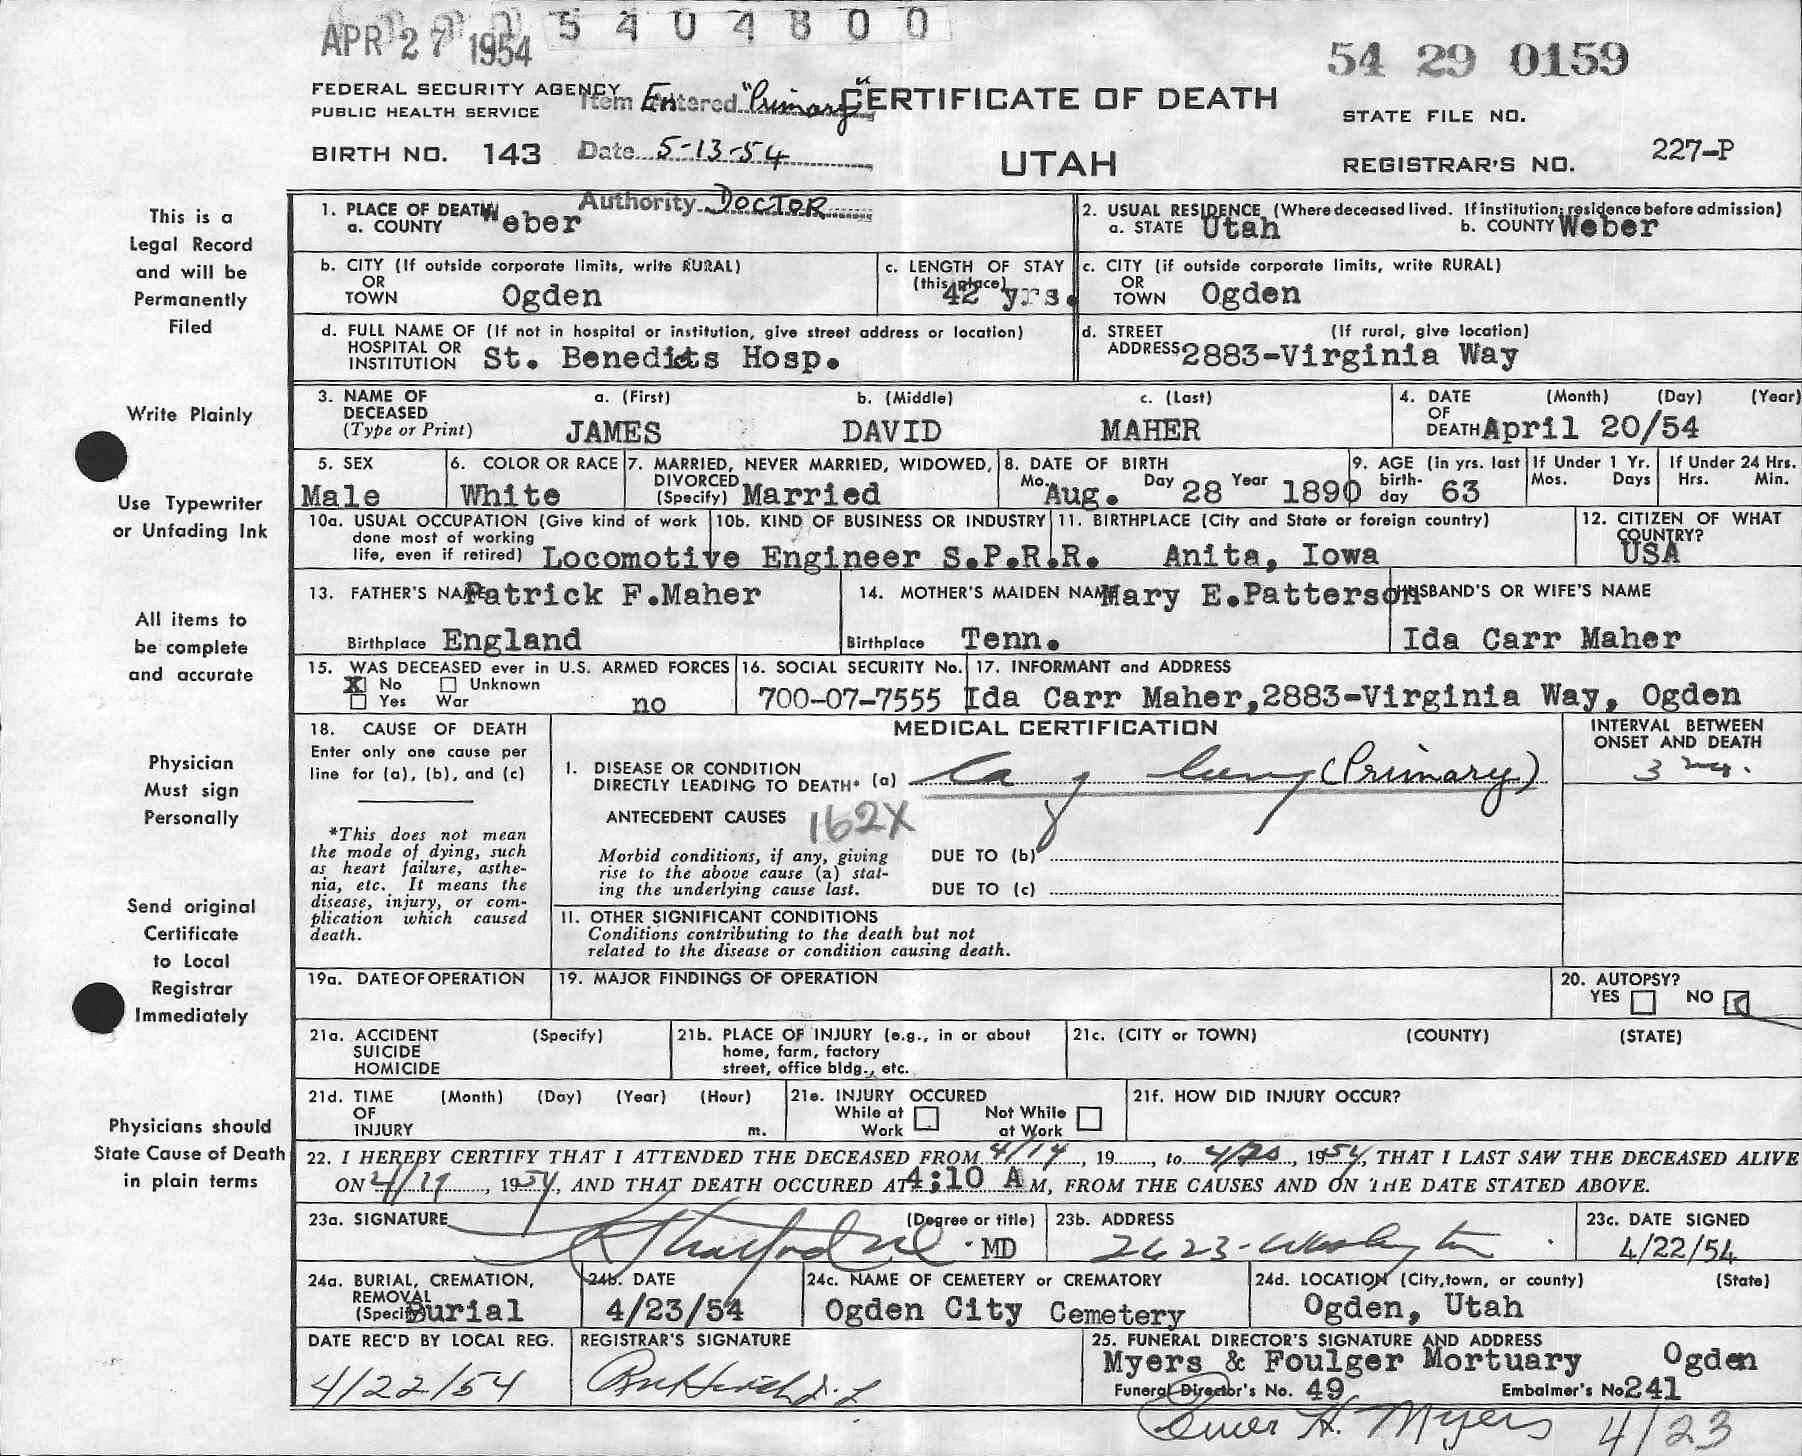 APR 27 1954
5 4 0 4 8 0 0
54 29 0159
FEDERAL SECURITY AGENCY
PUBLIC HEALTH SERVICE
Item Entered "Primary"
CERTIFICATE OF DEATH
STATE FILE NO.
BIRTH NO. 143
Date 5-13-54
UTAH
REGISTRAR'S NO. 227-P
Authority DOCTOR
This is a
Legal Record
and will be
Permanently
Filed
Write Plainly
Use Typewriter
or Unfading Ink
All items to
be complete
and accurate
Physician
Must sign
Personally
Send original
Certificate
to Local
Registrar
Immediately
Physicians should
State Cause of Death
in plain terms
1. PLACE OF DEATH
a. COUNTY Weber
2. USUAL RESIDENCE (Where deceased lived. If institution; residence before admission)
a. STATE Utah b. COUNTY Weber
b. CITY (If outside corporate limits, write RURAL)
OR
TOWN Ogden
c. LENGTH OF STAY
(this place)
42 yrs.
c. CITY (if outside corporate limits, write RURAL)
OR
TOWN Ogden
d. FULL NAME OF (If not in hospital or institution, give street address or location)
HOSPITAL OR
INSTITUTION St. Benedicts Hosp.
d. STREET (If rural, give location)
ADDRESS 2883-Virginia Way
3. NAME OF
DECEASED
(Type or Print)
a. (First) b. (Middle) c. (Last)
JAMES DAVID MAHER
4. DATE (Month) (Day) (Year)
OF
DEATH April 20/54
5. SEX
Male
6. COLOR OR RACE
White
7. MARRIED, NEVER MARRIED, WIDOWED,
DIVORCED
(Specify) Married
8. DATE OF BIRTH
Mo. Aug. Day 28 Year 1890
9. AGE (in yrs. last
birth-
day 63
If Under 1 Yr.
Mos. Days
If Under 24 Hrs.
Hrs. Min.
10a. USUAL OCCUPATION (Give kind of work
done most of working
life, even if retired) Locomotive Engineer
10b. KIND OF BUSINESS OR INDUSTRY
S.P.R.R.
11. BIRTHPLACE (City and State or foreign country)
Anita, Iowa
12. CITIZEN OF WHAT
COUNTRY?
USA
13. FATHER'S NAME Patrick F.Maher
Birthplace England
14. MOTHER'S MAIDEN NAME Mary E.Patterson
Birthplace Tenn.
HUSBAND'S OR WIFE'S NAME
Ida Carr Maher
15. WAS DECEASED ever in U.S. ARMED FORCES
X No Unknown
Yes War no
16. SOCIAL SECURITY No.
700-07-7555
17. INFORMANT and ADDRESS
Ida Carr Maher,2883-Virginia Way, Ogden
18. CAUSE OF DEATH
Enter only one cause per
line for (a), (b), and (c)
*This does not mean
the mode of dying, such
as heart failure, asthe-
nia, etc. It means the
disease, injury, or com-
plication which caused
death.
MEDICAL CERTIFICATION
INTERVAL BETWEEN
ONSET AND DEATH
I. DISEASE OR CONDITION
DIRECTLY LEADING TO DEATH* (a) Ca of lung (Primary)
3
ANTECEDENT CAUSES 162X
Morbid conditions, if any, giving
rise to the above cause (a) stat-
ing the underlying cause last.
DUE TO (b)
DUE TO (c)
II. OTHER SIGNIFICANT CONDITIONS
Conditions contributing to the death but not
related to the disease or condition causing death.
19a. DATE OF OPERATION
19. MAJOR FINDINGS OF OPERATION
20. AUTOPSY?
YES NO
21a. ACCIDENT (Specify)
SUICIDE
HOMICIDE
21b. PLACE OF INJURY (e.g., in or about
home, farm, factory
street, office bldg., etc.
21c. (CITY or TOWN) (COUNTY) (STATE)
21d. TIME (Month) (Day) (Year) (Hour)
OF
INJURY m.
21e. INJURY OCCURED
While at
Work
Not While
at Work
21f. HOW DID INJURY OCCUR?
22. I HEREBY CERTIFY THAT I ATTENDED THE DECEASED FROM 4/14, 19, to 4/20, 1954, THAT I LAST SAW THE DECEASED ALIVE
ON 4/19, 1954, AND THAT DEATH OCCURED AT 4:10 A M, FROM THE CAUSES AND ON THE DATE STATED ABOVE.
23a. SIGNATURE (Degree or title)
MD
23b. ADDRESS
2623-Washington
23c. DATE SIGNED
4/22/54
24a. BURIAL, CREMATION,
REMOVAL
(Specify) Burial
24b. DATE
4/23/54
24c. NAME OF CEMETERY or CREMATORY
Ogden City Cemetery
24d. LOCATION (City,town, or county) (State)
Ogden, Utah
DATE REC'D BY LOCAL REG.
4/22/54
REGISTRAR'S SIGNATURE
25. FUNERAL DIRECTOR'S SIGNATURE AND ADDRESS
Myers & Foulger Mortuary Ogden
Funeral Director's No. 49 Embalmer's No 241
H. Myers 4/23